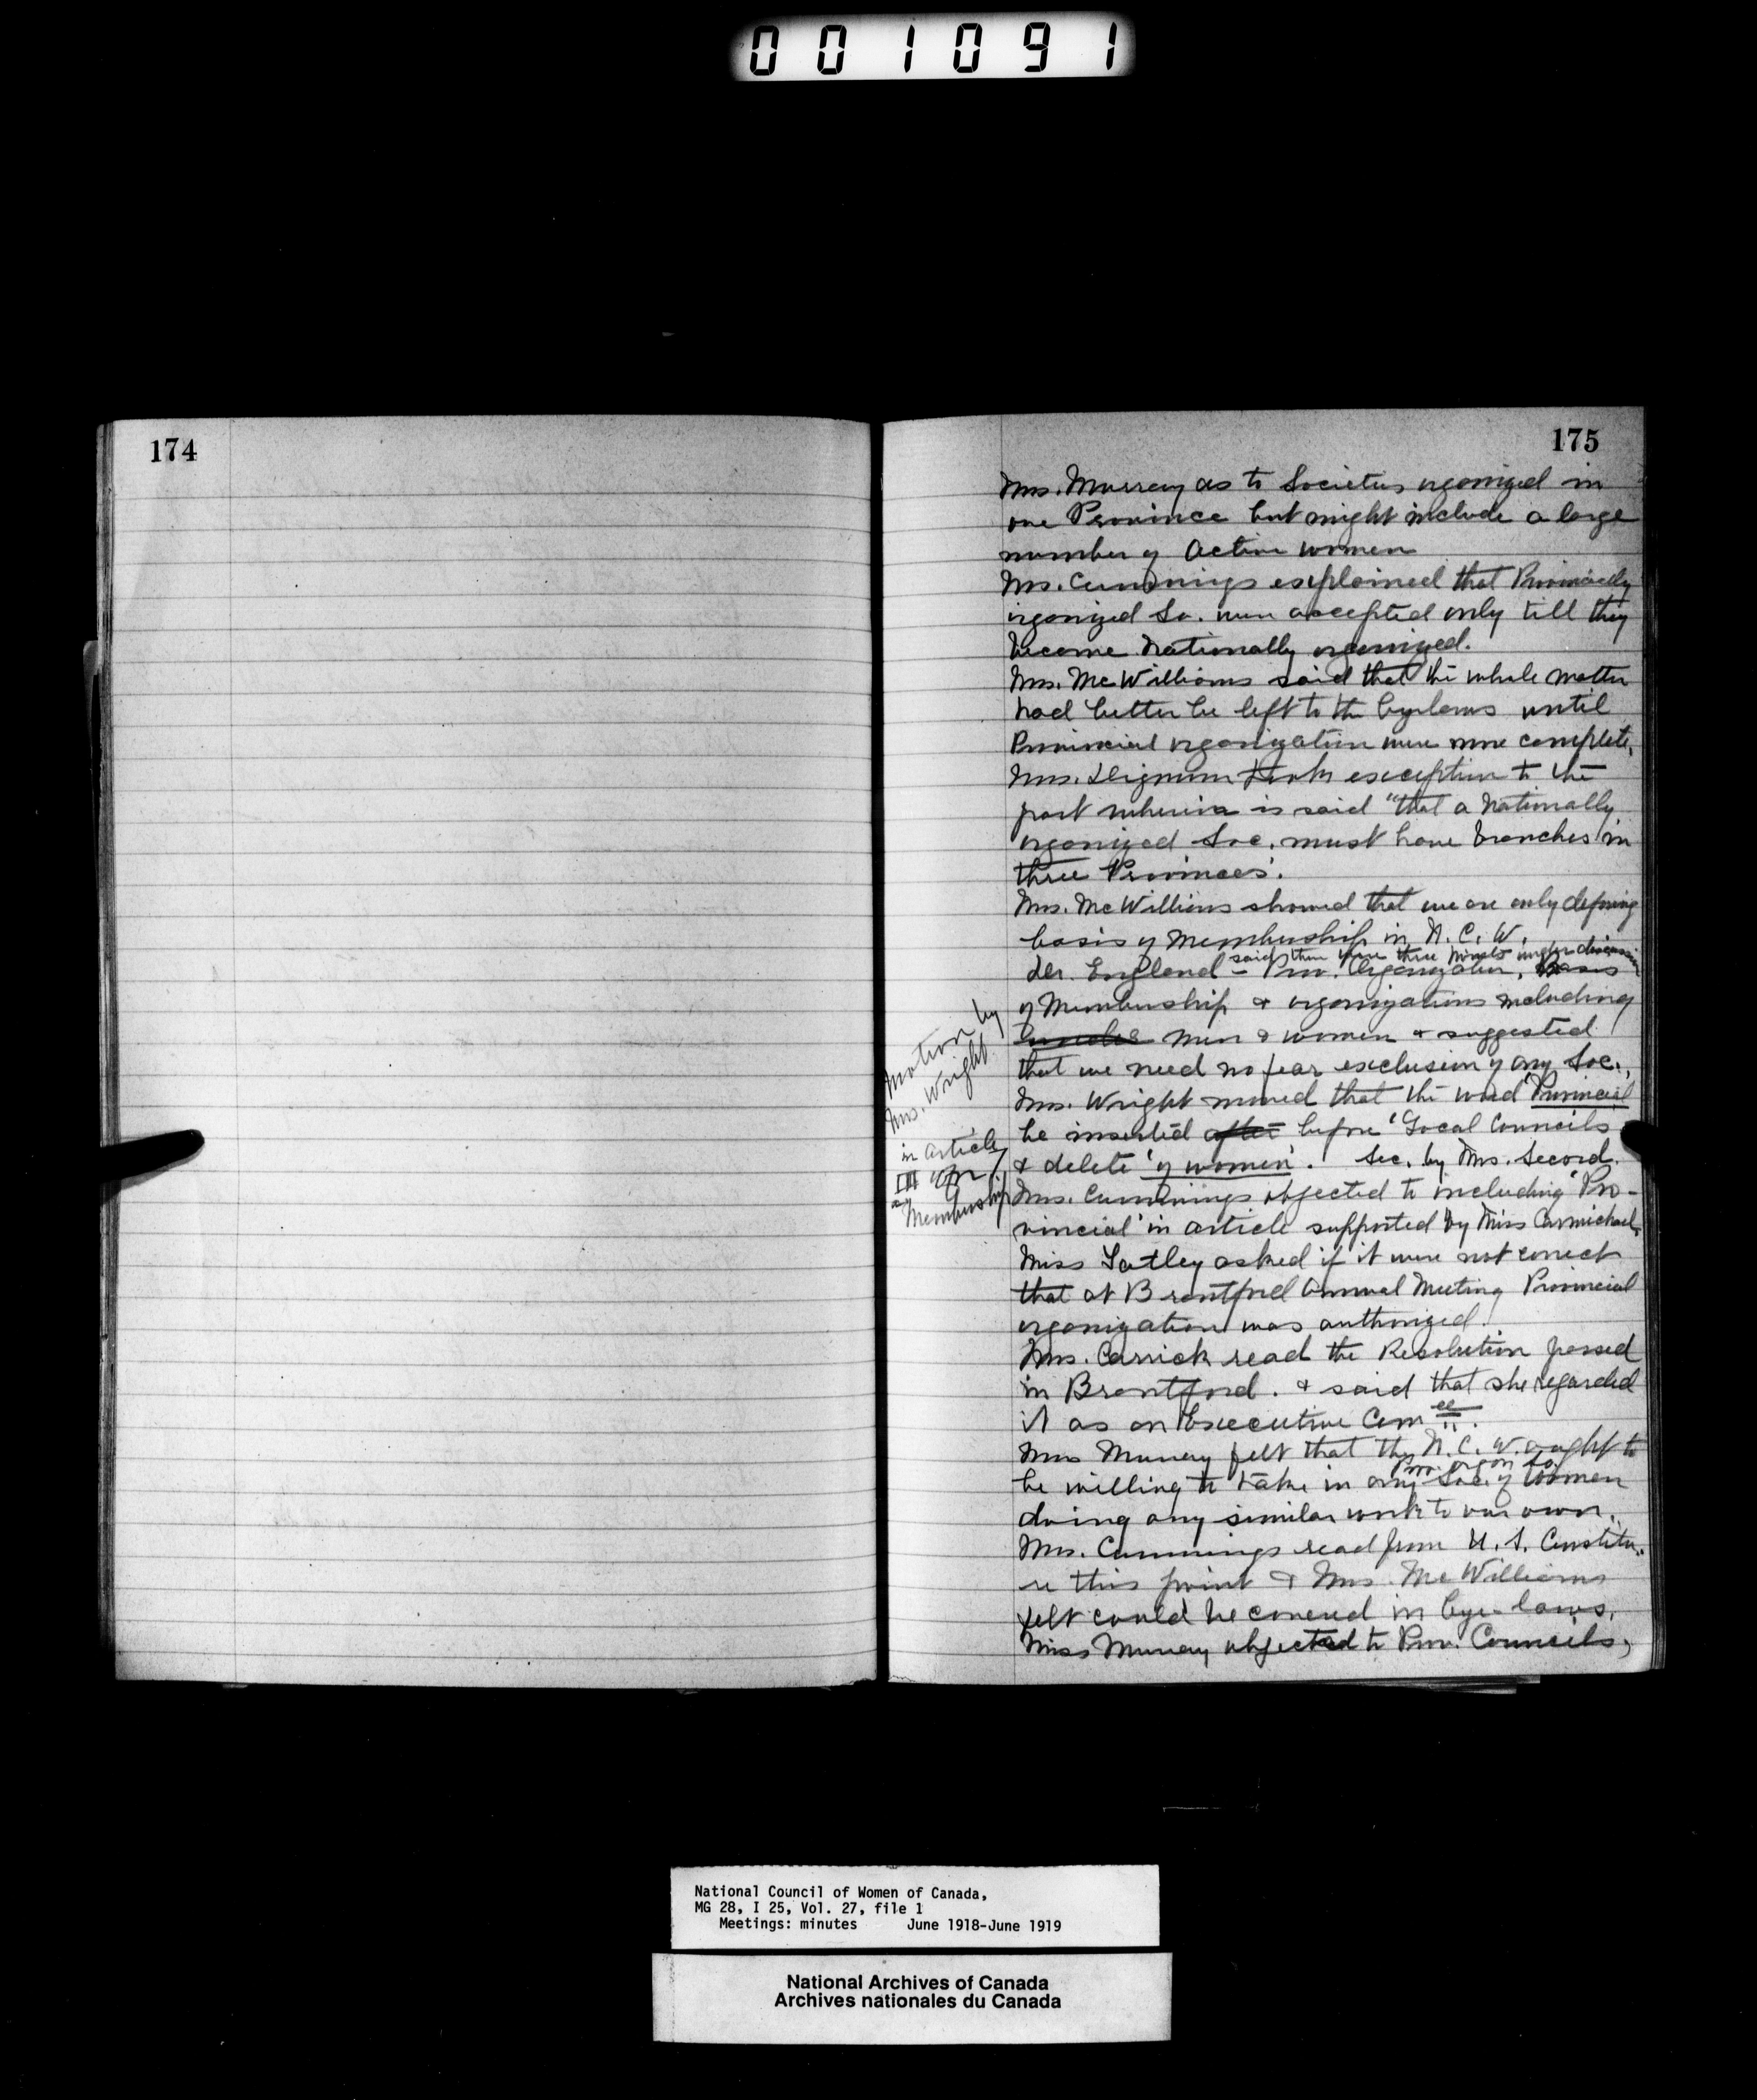 001091
174
175
Mrs. Murray as to Societies organized in
one Province but might include a large
number of active women
Mrs. Cummings explained that Provincially
organized So. were accepted only till they
become nationally organized.
Mrs. McWilliams said that the whole matter
had better be left to the bye laws until
Provincial organization were more complete.
Mrs. Dignum took exception to the
part wherein is said "that a nationally
organized Soc. must have branches in
three Provinces'.
Mrs. McWilliams showed that we are only defining
basis of membership in N. C. W.
said there were three points under discussion
Dr. England - Prov. Organization, basis
of Membership & organizations including
men & women & suggested
that we need no fear exclusion of any Soc.,
Motion by
Mrs. Wright
in article
III on
Membership
Mrs. Wright moved that the word 'Provincial
be inserted after before 'Local Councils
& delete 'of women'. Sec. by Mrs. Secord.
Mrs. Cummings objected to including 'Pro-
vincial' in article supported by Miss Carmichael
Miss Yatley asked if it were not correct
that at Brantford Annual Meeting Provincial
organization was authorized.
Mrs. Carrick read the Resolution passed
in Brantford. & said that she regarded
it as an Executive Com ee.
Miss Murray felt that the N. C. W. ought to
Prov. organ. So.
be willing to take in any Soc. of Women
doing any similar work to our own.
Mrs. Cummings read from U. S. Constitu.
re this point & Mrs. McWilliams
felt could be covered in bye-laws.
Miss Murray objected to Prov. Councils,
National Council of Women of Canada,
MG 28, I 25, Vol. 27, file 1
Meetings: minutes June 1918-June 1919
National Archives of Canada
Archives nationales du Canada